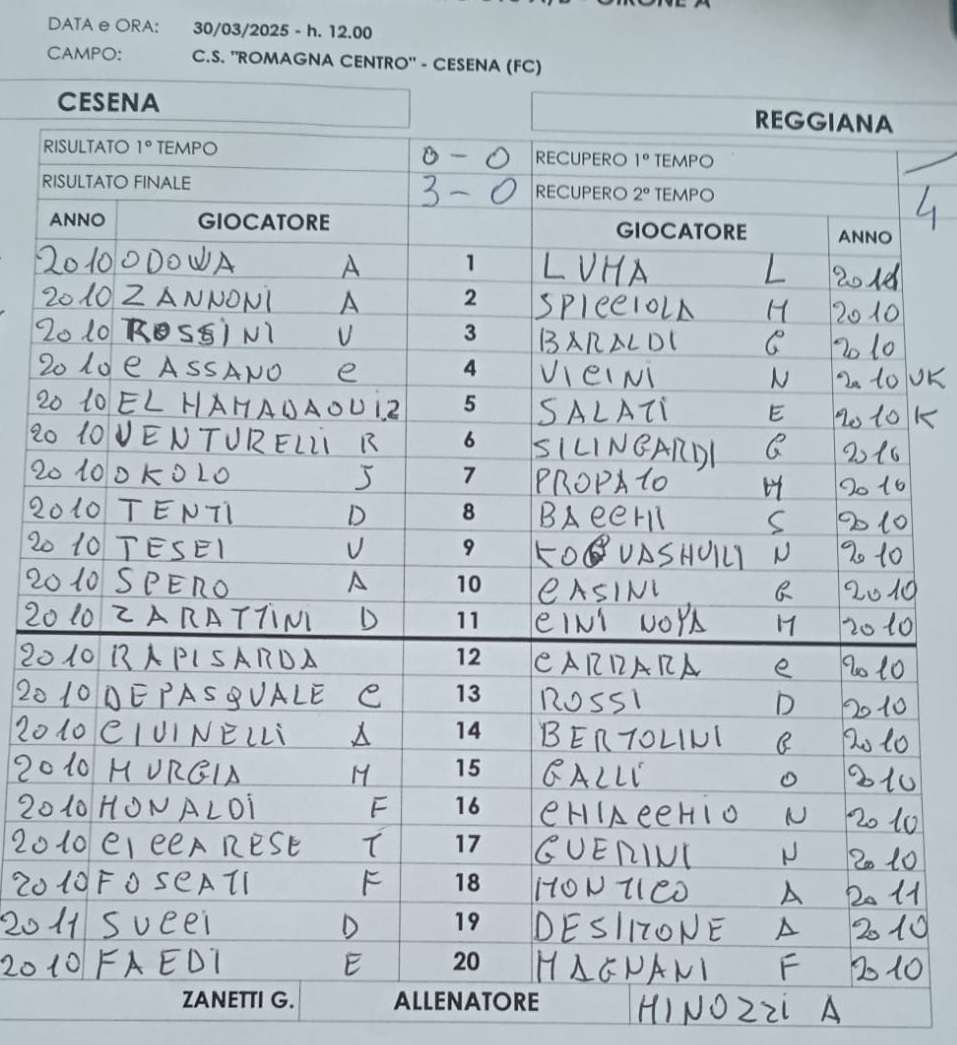 GIRONE A
DATA e ORA: 30/03/2025 - h. 12.00
CAMPO: C.S. "ROMAGNA CENTRO" - CESENA (FC)
CESENA REGGIANA
RISULTATO 1° TEMPO 0 - 0 RECUPERO 1° TEMPO —
RISULTATO FINALE 3 - 0 RECUPERO 2° TEMPO 4
ANNO GIOCATORE GIOCATORE ANNO
2010 ODOWA A 1 LUMA L
2010 ZANNONI A 2 SPICCIOLA M 2010
2010 ROSSINI V 3 BARALDI G 2010
2010 CASSANO C 4 VICINI N 2010 VK
2010 EL HAMADAOUI.Z 5 SALATI E 2010 K
2010 VENTURELLI R 6 SILINGARDI G 2010
2010 OKOLO J 7 PROPATO M 2010
2010 TENTI D 8 BACCHI S 2010
2010 TESEI V 9 N 2010
2010 SPERO A 10 CASINI G 2010
2010 ZARATTINI D 11 CINI NOYA M 2010
2010 RAPISARDA 12 CARRARA C 2010
2010 DE PASQUALE C 13 ROSSI D 2010
2010 CIVINELLI A 14 BERTOLINI G 2010
2010 MURGIA M 15 GALLI O 2010
2010 MONALDI F 16 CHIACCHIO N 2010
2010 CICCARESE T 17 GUERINI N 2010
2010 FOSCATI F 18 MONTICO A 2011
2011 SUCCI D 19 DESIMONE A 2010
2010 FAEDI E 20 MAGNANI F 2010
ZANETTI G. ALLENATORE MINOZZI A